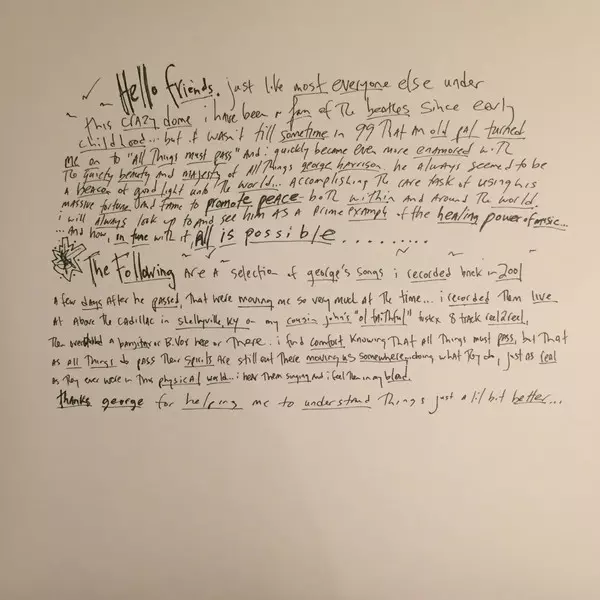 Hello friends. just like most everyone else under
this CRAZY dome i have been a fan of The beatles since early
childhood... but it wasn't till sometime in 99 That an old pal turned
me on to "All Things must pass" And i quickly became even more enamored with
The quiety beauty and majesty of All Things george harrison. he always seemed to be
a beacon of good light unto The world... accomplishing the rare task of using his
massive fortune and fame to promote peace both within and around The world.
i will always look up to and see him as a prime example of the healing power of music...
...And how, in tune with it, All is possible.........
The Following are a selection of george's songs i recorded back in 2001
a few days after he passed, That were moving me so very much at the time... i recorded Them live
at Above the Cadillac in Shelbyville, Ky on my cousin john's "ol faithful" 8 track reel 2 reel,
Then a banjo or B.Vox here or There.. i find comfort knowing That all Things must pass, but That
as all Things do pass Their Spirits are still out There moving us somewhere, doing what They do, just as real
as They ever were in This physical world... i hear Them singing and i feel Them in my blood.
thanks george for helping me to understand Things just a lil bit better...